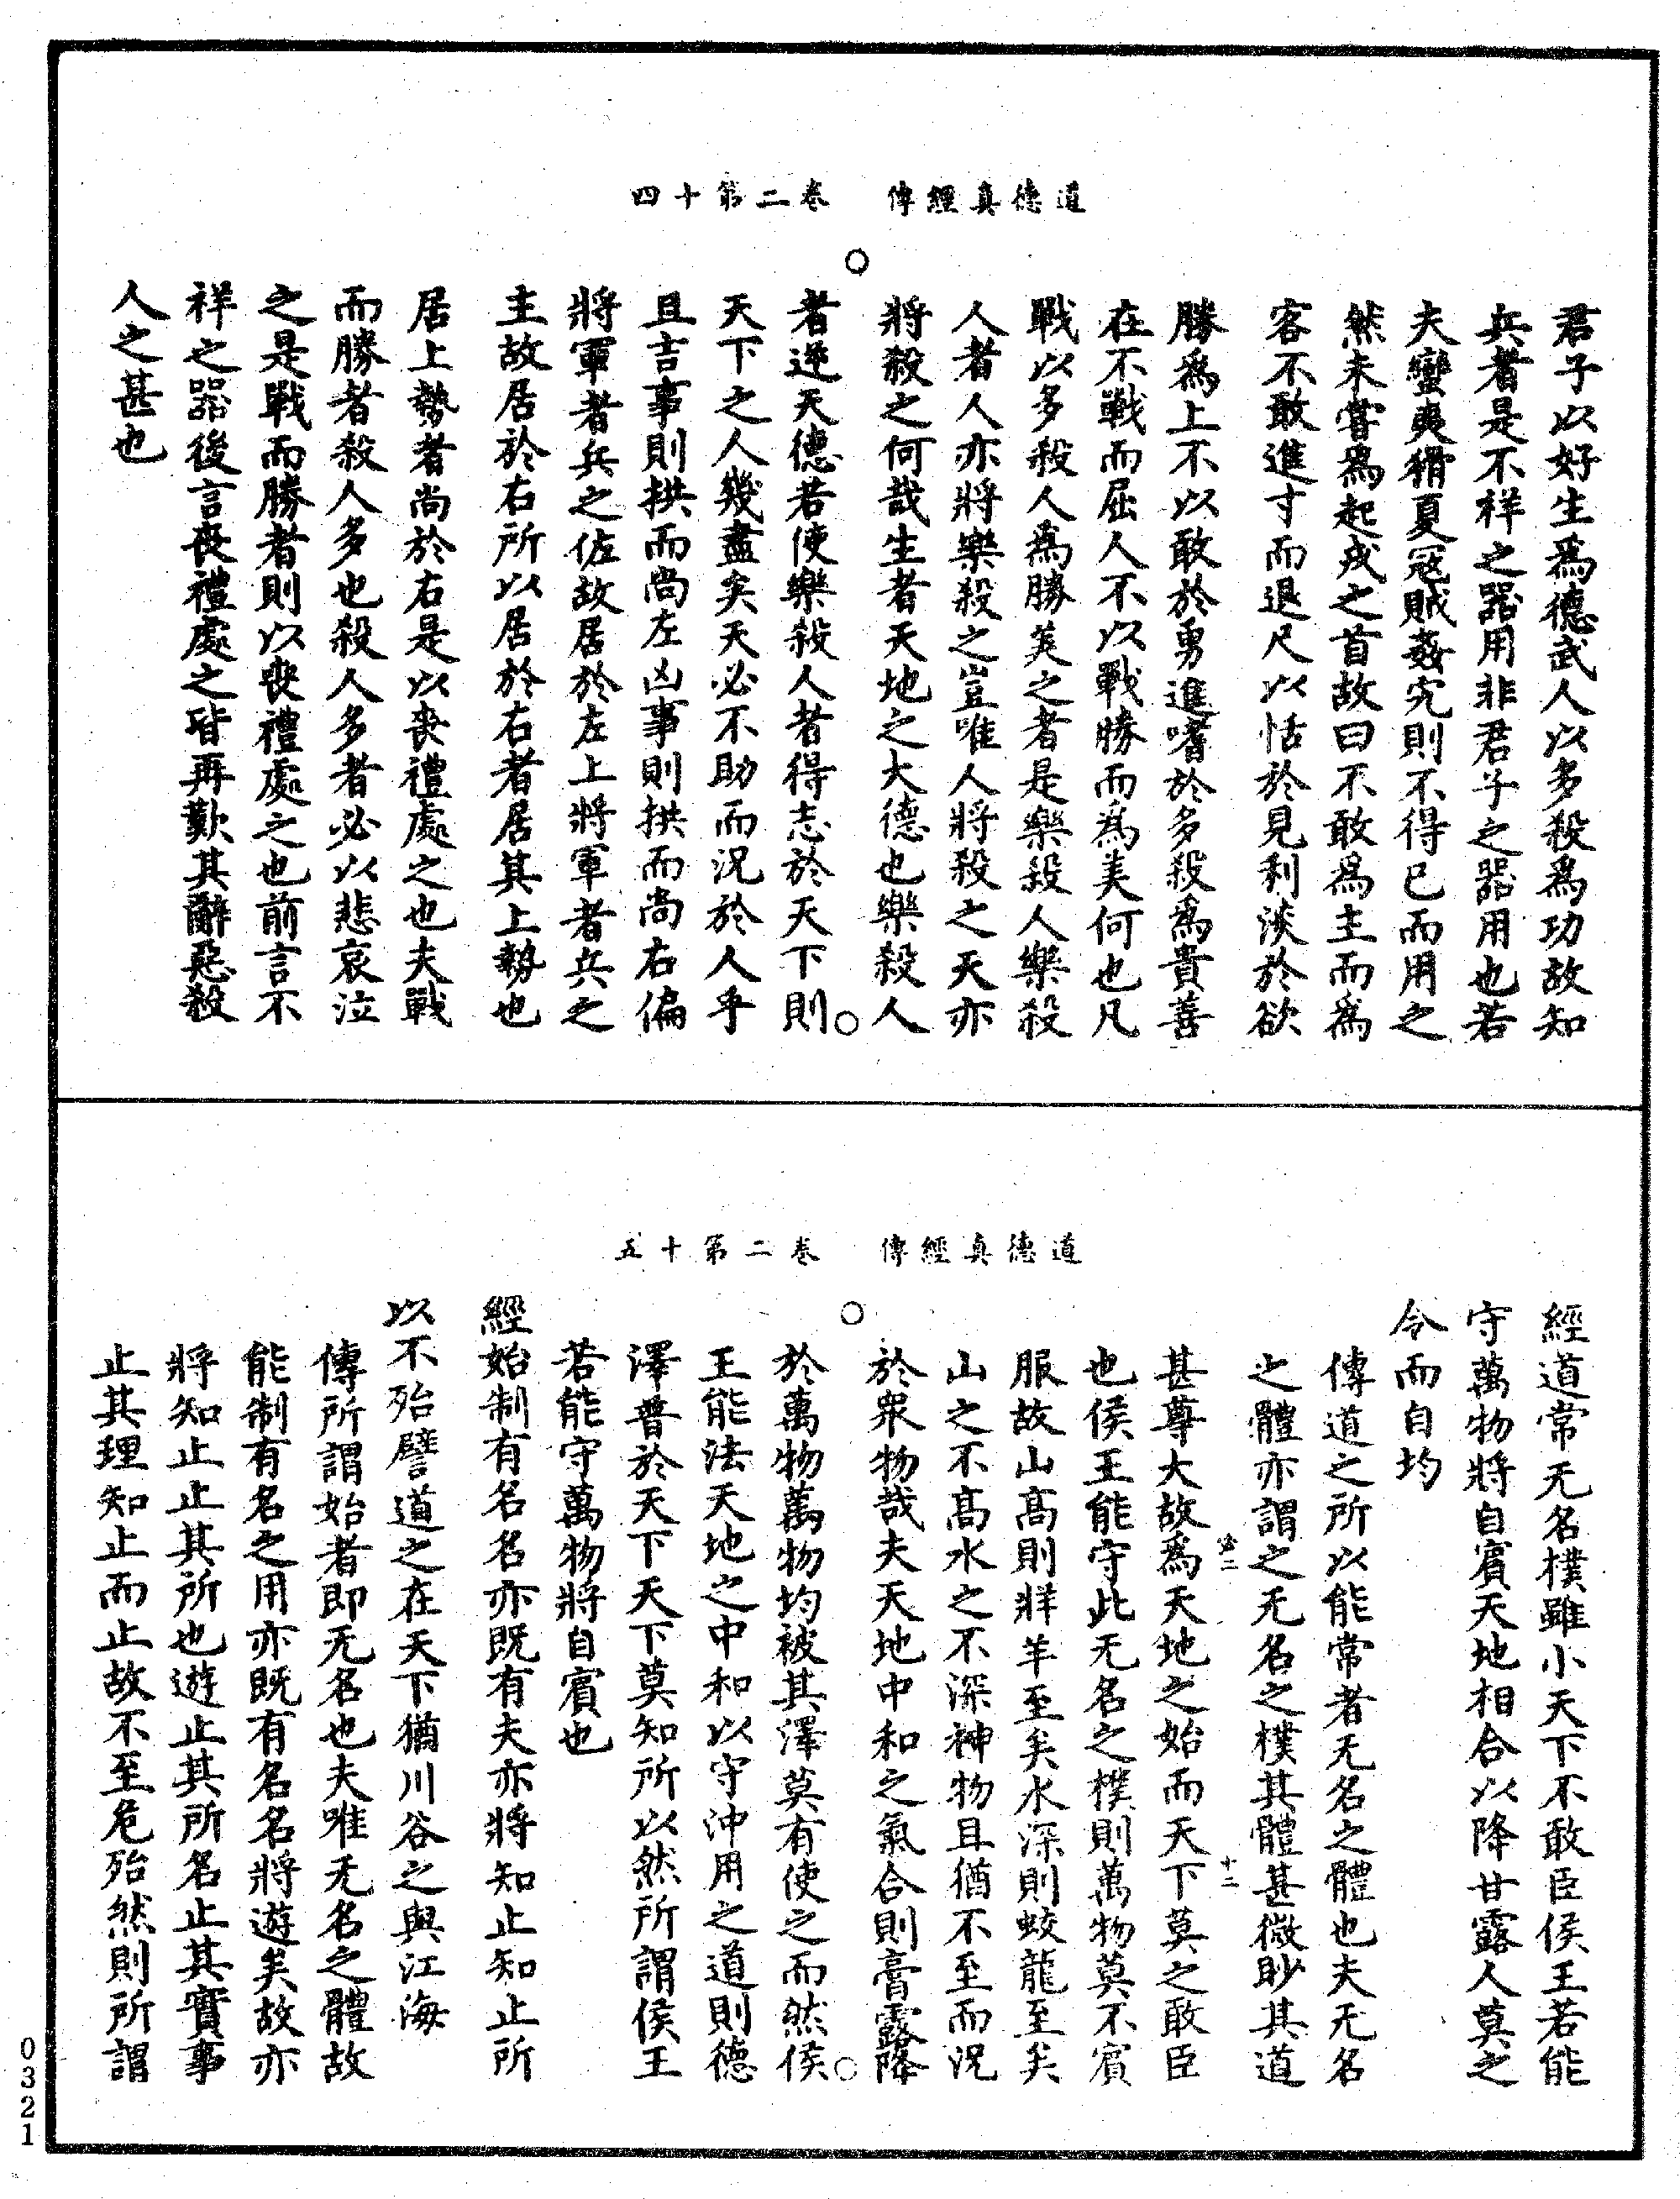 道德真經傳　卷二第十四
君子以好生爲德武人以多殺爲功故知
兵者是不祥之器用非君子之器用也若
夫蠻夷猾夏寇賊姦宄則不得已而用之
然未嘗爲起戎之首故曰不敢爲主而爲
客不敢進寸而退尺以恬於見利淡於欲
勝爲上不以敢於勇進嗜於多殺爲貴善
在不戰而屈人不以戰勝而爲美何也凡
戰以多殺人爲勝美之者是樂殺人樂殺
人者人亦將樂殺之豈唯人將殺之天亦
將殺之何哉生者天地之大德也樂殺人
者逆天德若使樂殺人者得志於天下則
天下之人幾盡矣天必不助而況於人乎
且吉事則拱而尚左凶事則拱而尚右偏
將軍者兵之佐故居於左上將軍者兵之
主故居於右所以居於右者居其上勢也
居上勢者尚於右是以喪禮處之也夫戰
而勝者殺人多也殺人多者必以悲哀泣
之是戰而勝者則以喪禮處之也前言不
祥之器後言喪禮處之皆再歎其辭惡殺
人之甚也
道德真經傳　卷二第十五
經道常无名樸雖小天下不敢臣侯王若能
守萬物將自賓天地相合以降甘露人莫之
令而自均
傳道之所以能常者无名之體也夫无名
之體亦謂之无名之樸其體甚微眇其道
甚尊大故爲天地之始而天下莫之敢臣
也侯王能守此无名之樸則萬物莫不賓
服故山高則牂羊至矣水深則蛟龍至矣
山之不高水之不深神物且猶不至而況
於衆物哉夫天地中和之氣合則膏露降
於萬物萬物均被其澤莫有使之而然侯
王能法天地之中和以守沖用之道則德
澤普於天下天下莫知所以然所謂侯王
若能守萬物將自賓也
經始制有名名亦既有夫亦將知止知止所
以不殆譬道之在天下猶川谷之與江海
傳所謂始者即无名也夫唯无名之體故
能制有名之用亦既有名名將遊矣故亦
將知止止其所也遊止其所名止其實事
止其理知止而止故不至危殆然則所謂
0321